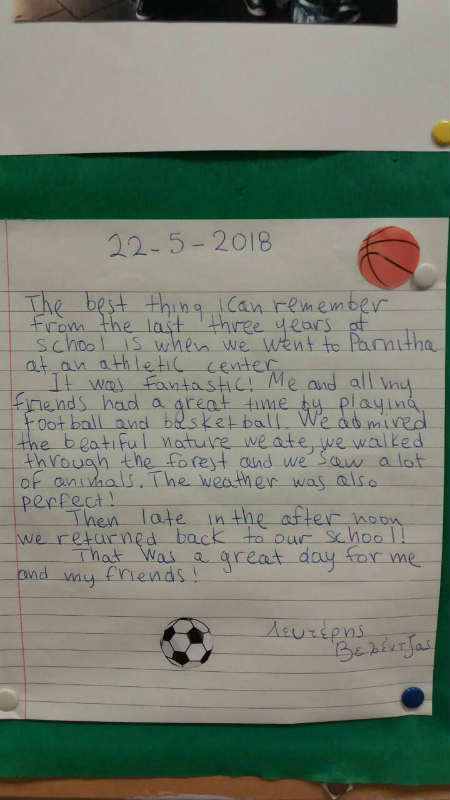 22-5-2018
The best thing I can remember
from the last three years at
school is when we went to Parnitha
at an athletic center
It was fantastic! Me and all my
friends had a great time by playing
football and basketball. We admired
the beatiful nature we ate, we walked
through the forest and we saw a lot
of animals. The weather was also
perfect!
Then late in the after noon
we returned back to our school!
That was a great day for me
and my friends!
Λευτέρης
Βελέντζας